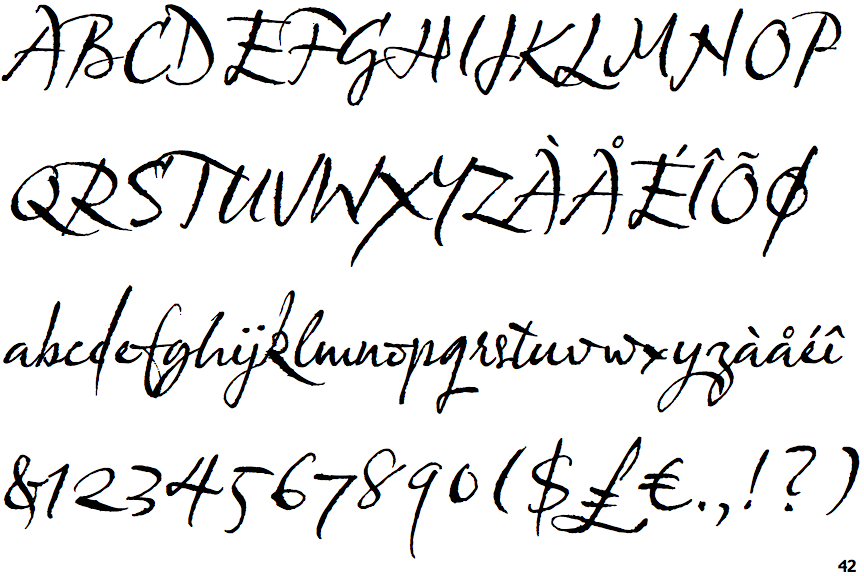 ABCDEFGHIJKLMNOP
QRSTUVWXYZÀÅÉÎÕØ
abcdefghijklmnopqrstuvwxyzàåéî
&1234567890($£€.,!?)
42